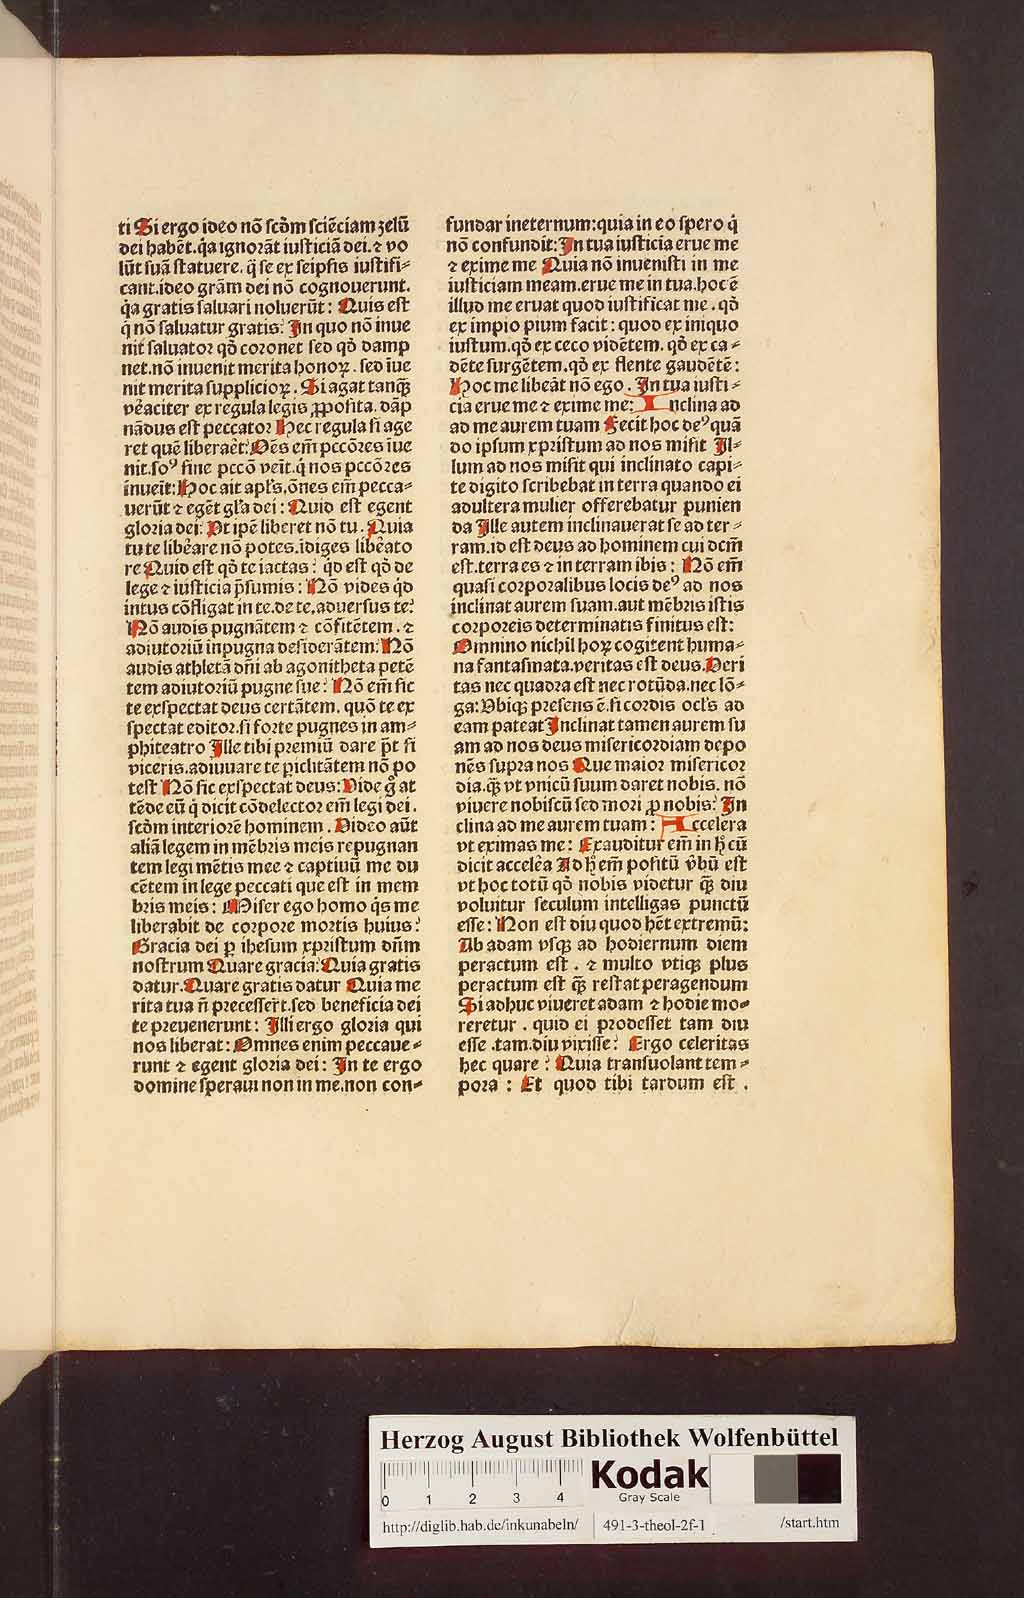 ti Si ergo ideo nō scd̄m sciēciam zelū
dei habēt. q̇a ignorāt iusticiā dei. ⁊ vo
lūt suā statuere. q̇ se ex seipsis iustifi⸗
cant. ideo grām dei nō cognouerunt.
q̇a gratis saluari noluerūt: Quis est
q̇ nō saluatur gratis? In quo nō inue
nit saluator qd̄ coronet sed qd̄ damp
net. nō inuenit merita honoꝝ. sed īue
nit merita supplicioꝝ. Si agat tanqꝫ
ve̾aciter ex regula legis ꝓposita. dāp
nādus est peccator Hec regula si age
ret quē liberaret? Oēs em̄ pccōres īue
nit. soꝰ sine pccō veīt. q̇ nos pccōres
inueīt: Hoc ait apl's, ōnes em̄ pecca⸗
uerūt ⁊ egēt gl'a dei: Quid est egent
gloria dei: Vt ipē liberet nō tu. Quia
tu te libe̾are nō potes. īdiges libe̾ato
re Quid est qd̄ te iactas: q̇d est qd̄ de
lege ⁊ iusticia p̄sumis: Nō vides q̇d
intus cōfligat in te. de te. aduersus te?
Nō audis pugnātem ⁊ cōfitētem. ⁊
adiutoriū in pugna desiderātem: Nō
audis athletā dn̄i ab agonitheta petē
tem adiutoriū pugne sue? Nō em̄ sic
te exspectat deus certātem. quō te ex
spectat editor. si forte pugnes in am⸗
phiteatro Ille tibi premiū dare p̄t si
viceris. adiuuare te ꝑiclitātem nō po
test Nō sic exspectat deus: Vide gͦ at
tēde eū q̇ dicit cōdelector em̄ legi dei.
scd̄m interiorē hominem. Video aūt
aliā legem in mēbris meis repugnan
tem legi mētis mee ⁊ captiuū me du
cētem in lege peccati que est in mem
bris meis: Miser ego homo q̇s me
liberabit de corpore mortis huius?
Gracia dei ꝑ ihesum xpristum dn̄m
nostrum Quare gracia? Quia gratis
datur. Quare gratis datur Quia me
rita tua n̄ precesser̄t. sed beneficia dei
te preuenerunt: Illi ergo gloria qui
nos liberat: Omnes enim peccaue⸗
runt ⁊ egent gloria dei: In te ergo
domine speraui non in me. non con⸗
fundar ineternum: quia in eo spero q̇
nō confundit: In tua iusticia erue me
⁊ exime me Quia nō inuenisti in me
iusticiam meam. erue me in tua. hoc ē
illud me eruat quod iustificat me. qd̄
ex impio pium facit: quod ex iniquo
iustum. qd̄ ex ceco vidētem. qd̄ ex ca⸗
dēte surgētem. qd̄ ex flente gaudētē:
Hoc me libeāt nō ego. In tua iusti⸗
cia erue me ⁊ exime me: Inclina ad
ad me aurem tuam Fecit hoc deꝰ quā
do ipsum xpristum ad nos misit Il⸗
lum ad nos misit qui inclinato capi⸗
te digito scribebat in terra quando ei
adultera mulier offerebatur punien
da Ille autem inclinauerat se ad ter⸗
ram. id est deus ad hominem cui dcm̄
est. terra es ⁊ in terram ibis: Nō em̄
quasi corporalibus locis deꝰ ad nos
inclinat aurem suam. aut mēbris istis
corporeis determinatis finitus est:
Omnino nichil hoꝝ cogitent huma⸗
na fantasmata. veritas est deus. Veri
tas nec quadra est nec rotūda. nec lō⸗
ga: Vbiqꝫ presens ē. si cordis ocl's ad
eam pateat Inclinat tamen aurem su
am ad nos deus misericordiam depo
nēs supra nos Que maior misericor
dia. qꝫ vt vnicū suum daret nobis. nō
viuere nobiscū sed mori ꝓ nobis? In
clina ad me aurem tuam: Accelera
vt eximas me: Exauditur em̄ in hͦ cū
dicit accele̾a Ad hͦ em̄ positū v̾bū est
vt hoc totū qd̄ nobis videtur qꝫ diu
voluitur seculum intelligas punctū
esse: Non est diu quod hēt extremū:
Ab adam vsqꝫ ad hodiernum diem
peractum est. ⁊ multo vtiqꝫ plus
peractum est qꝫ restat peragendum
Si adhuc viueret adam ⁊ hodie mo⸗
reretur. quid ei prodesset tam diu
esse. tam. diu vixisse? Ergo celeritas
hec quare? Quia transuolant tem⸗
pora: Et quod tibi tardum est.
Herzog August Bibliothek Wolfenbüttel
0 1 2 3 4
Kodak
Gray Scale
http://diglib.hab.de/inkunabeln/ 491-3-theol-2f-1 /start.htm